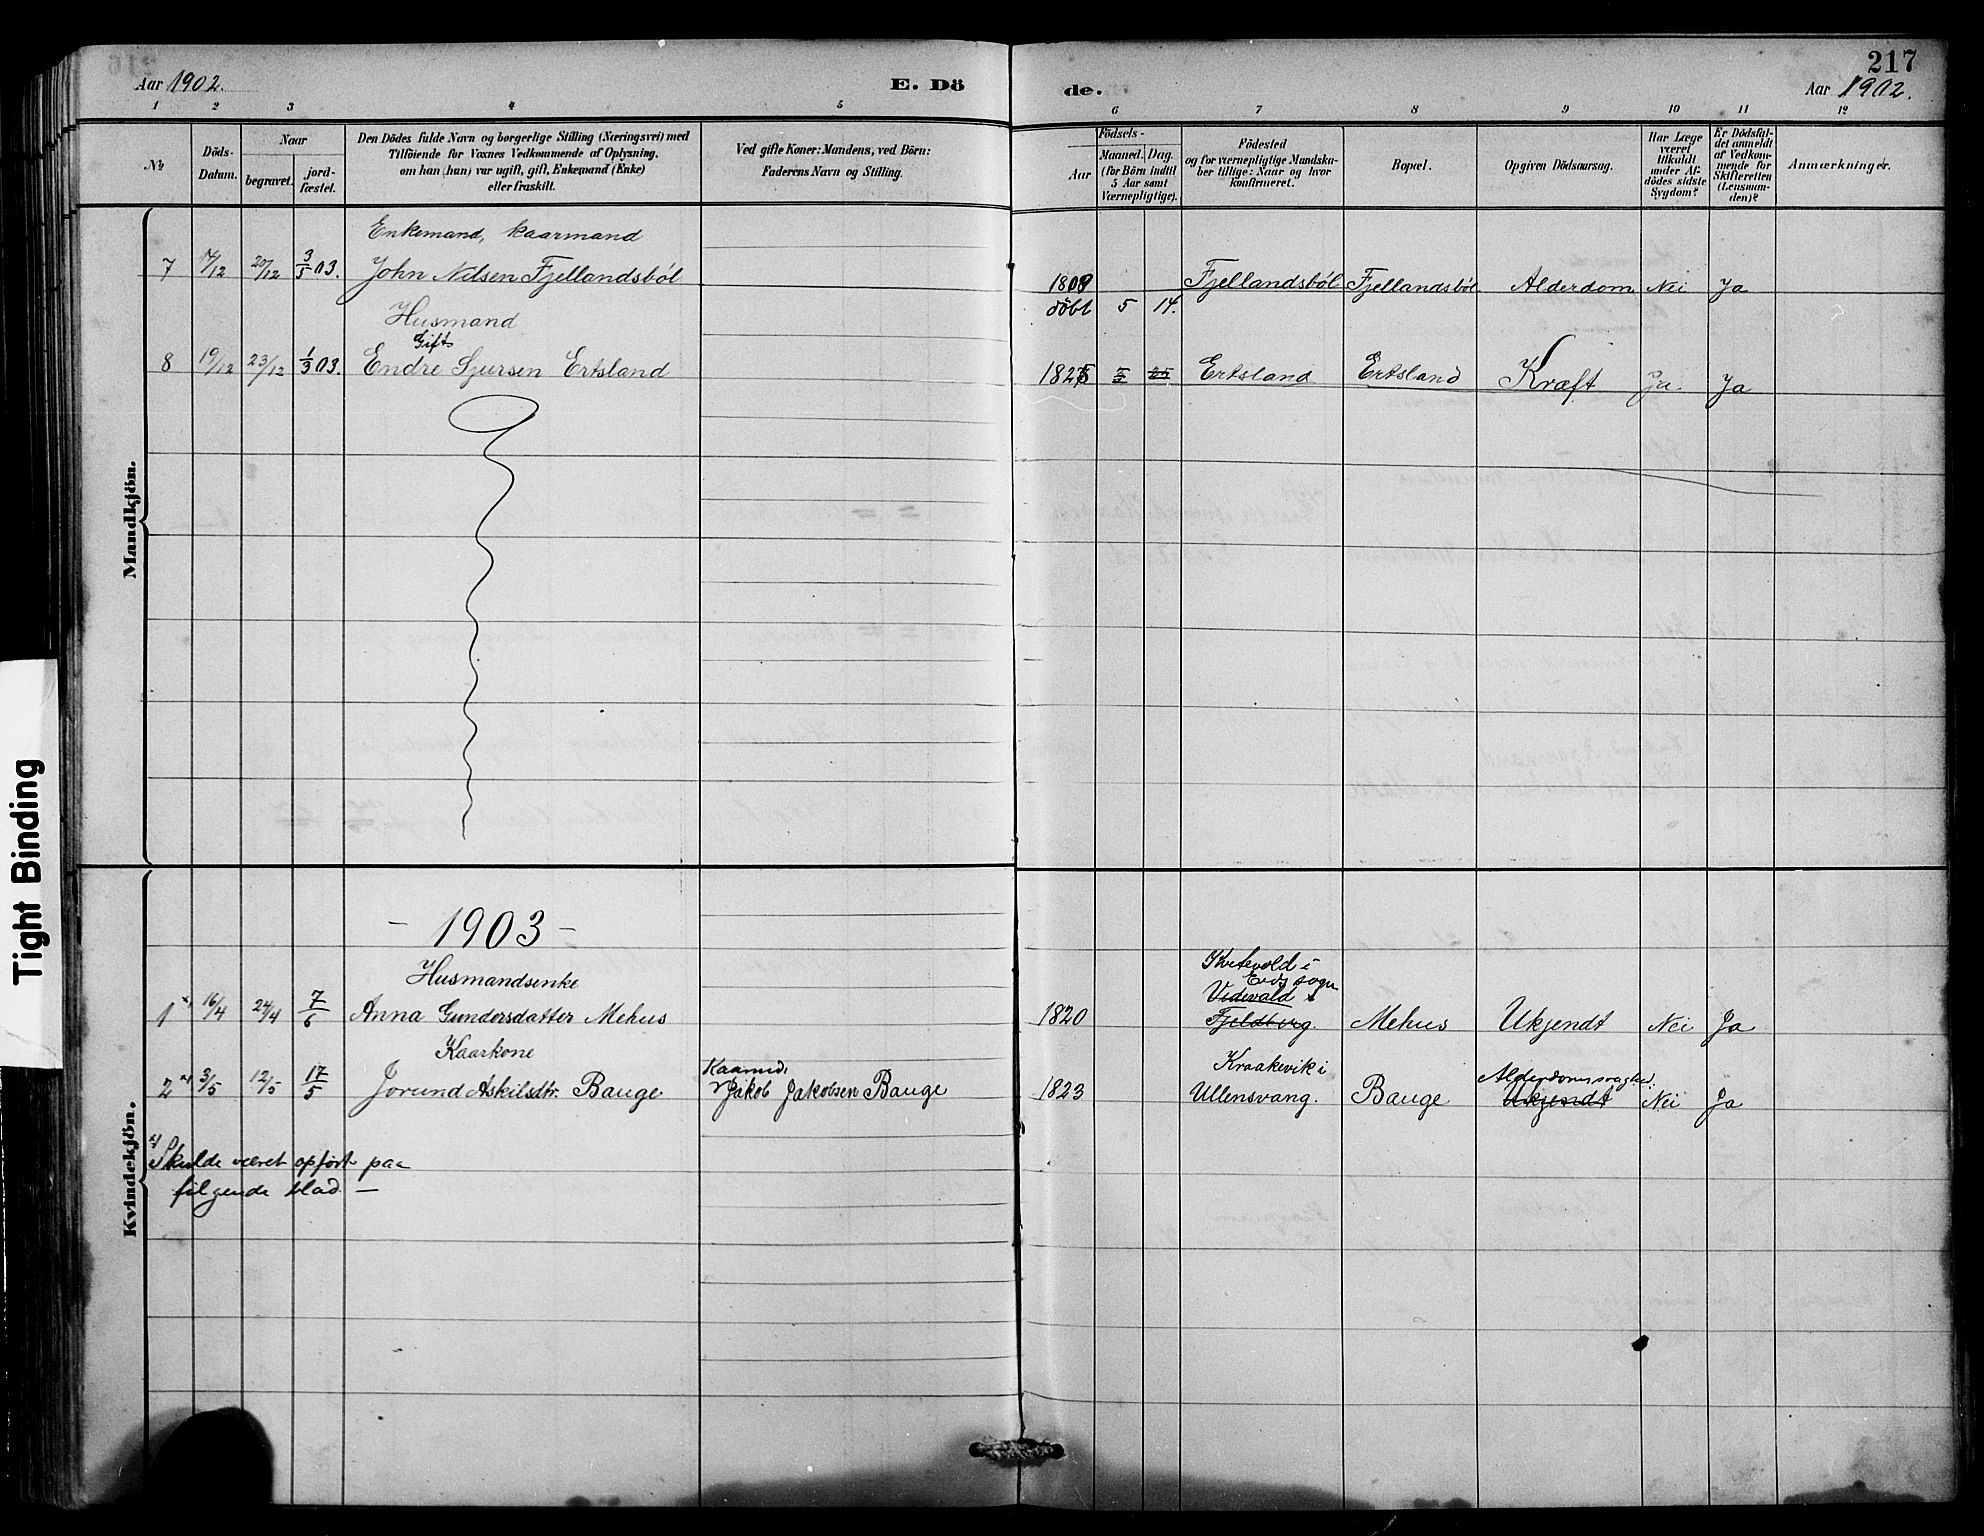 217
Aar 1902.
E. Dö
de.
Aar 1902.
1 2 3 4 5 6 7 8 9 10 11 12
№
Döds-
Datum.
Naar
begravet.
jord-
fæstet.
Den Dödes fulde Navn og borgerlige Stilling (Næringsvei) med
Tilföiende for Voxnes Vedkommende af Oplysning,
om han (hun) var ugift, gift, Enkemand (Enke)
eller fraskilt.
Ved gifte Koner: Mandens, ved Börn:
Faderens Navn og Stilling.
Födsels-
Aar
Maaned.
Dag.
(for Börn indtil
5 Aar samt
Værnepligtige).
Födested
og for værnepligtige Mandska-
ber tillige: Naar og hvor
konfirmeret.
Bopæl.
Opgiven Dödsaarsag.
Har Læge
været
tilkaldt
under Af-
dödes sidste
Sygdom?
Er Dödsfal-
det anmeldt
af Vedkom-
mende for
Skifteretten
(Lensman-
den)?
Anmærkninger.
Mandkjön.
Enkemand, kaarmand
7 /12 20/12 3/5 03. John Nilsen Fjellandsböl 1809 Fjellandsböl Fjellandsböl Alderdom Nei Ja
döbt 5 14.
Husmand
Gift
8 19/12 23/12 1/3 03. Endre Sjursen Ertsland 182 Ertsland Ertsland Kræft Ja. Ja
Kvindekjön.
- 1903 -
Husmandsenke
Kvitevold i
Eids sogn
Videvald i
1 16/4 24/4 7/6 Anna Gundersdatter Mehus 1820 Fjeldberg. Mehus Ukjendt Nei Ja
Kaarkone
Kaarmd.
Kraakevik i
Alderdomssvaghed.
2 3/5 12/5 17/5 Jorund Askilsdtr. Bauge Jakob Jakobsen Bauge 1823 Ullensvang. Bauge Ukjendt Nei Ja
Skulde været opført paa
følgende blad —
Tight Binding